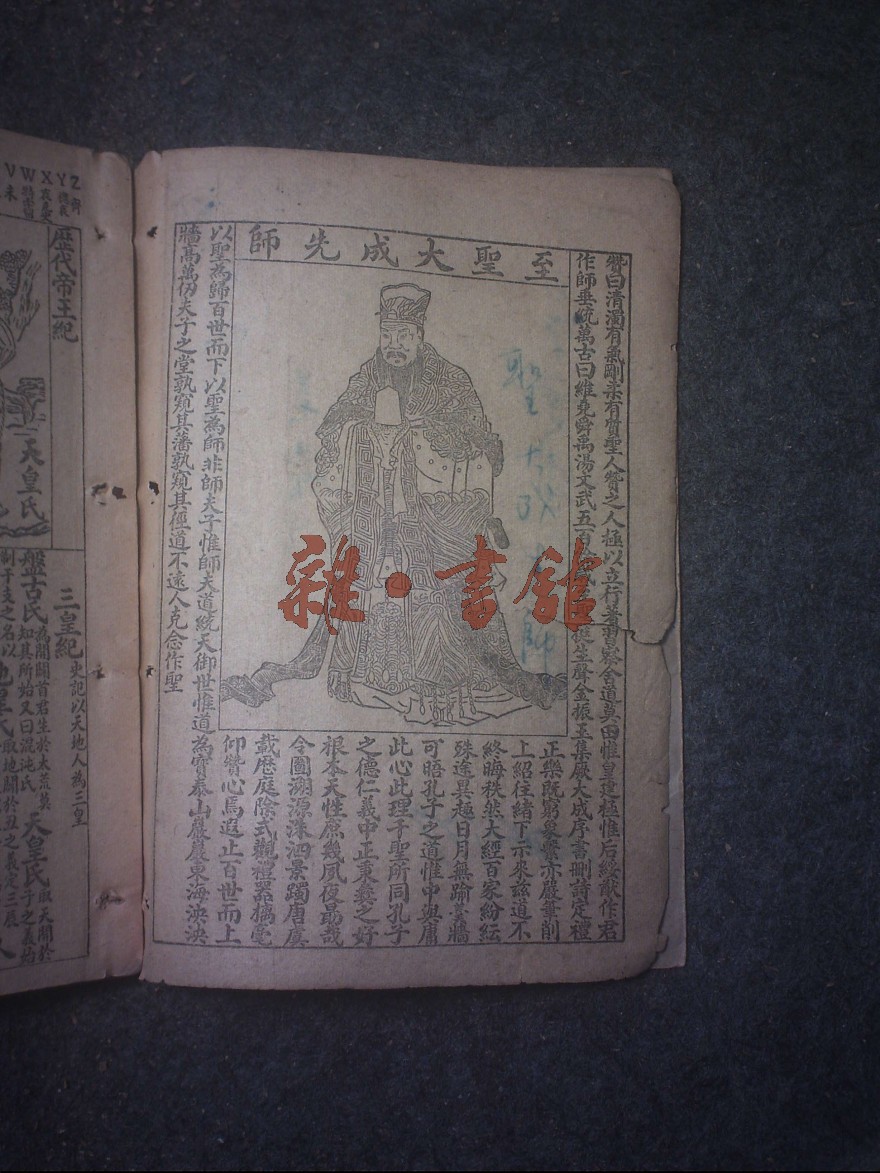 至聖大成先師
贊曰清濁有氣剛柔有質聖人贊之人極以立行著習察舍道莫由惟皇建極惟后綏猷作君
作師垂統萬古曰維堯舜禹湯文武五百生聲金振玉集厥大成序書刪詩定禮
正樂既窮象繫亦嚴筆削
上紹往緒下示來茲道不
終晦秩然大經百家紛紜
殊途異趨日月無踰羹牆
可晤孔子之道惟中與庸
此心此理千聖所同孔子
之德仁義中正秉彝之好
根本天性庶幾夙夜勗哉
令圖溯源洙泗景躅唐虞
載歷庭除式觀禮器摛毫
仰贊心焉遐止百世而上
以聖為歸百世而下以聖為師非師夫子惟師夫道統天御世惟道為寶泰山巖巖東海泱泱
牆高萬仞夫子之堂孰窺其潘孰窺其徑道不遠人克念作聖
聖 師
雜·書館
Z Y X W V
歷代帝王紀
天皇氏
三皇紀 史記以天地人為三皇
盤古氏 為開闢首君生於太荒莫知其所始又曰混沌氏 天皇氏 取天開於子之義始
制干支之名以 地皇氏 取地闢於丑之義定三辰 人